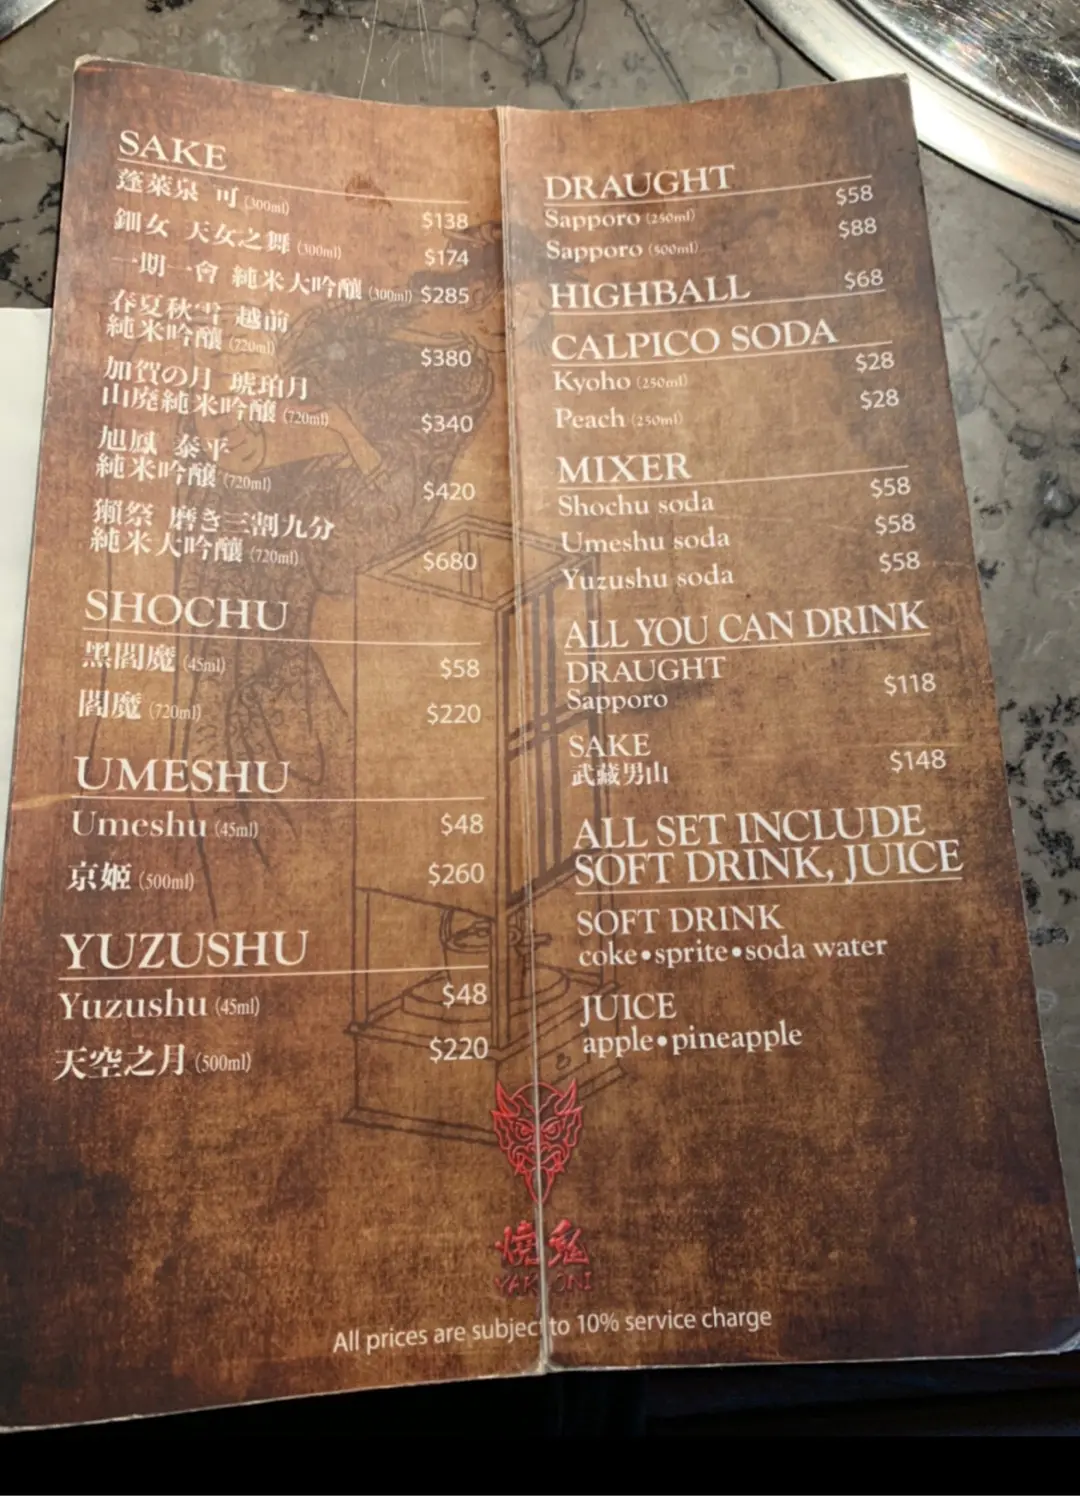 SAKE
蓬萊泉 可 (300ml) $138
鈿女 天女之舞 (300ml) $174
一期一會 純米大吟釀 (300ml) $285
春夏秋雪 越前
純米吟釀 (720ml) $380
加賀の月 琥珀月
山廃純米吟釀 (720ml) $340
旭鳳 泰平
純米吟釀 (720ml) $420
獺祭 磨き三割九分
純米大吟釀 (720ml) $680
SHOCHU
黑閻魔 (45ml) $58
閻魔 (720ml) $220
UMESHU
Umeshu (45ml) $48
京姬 (500ml) $260
YUZUSHU
Yuzushu (45ml) $48
天空之月 (500ml) $220
DRAUGHT
Sapporo (250ml) $58
Sapporo (500ml) $88
HIGHBALL $68
CALPICO SODA
Kyoho (250ml) $28
Peach (250ml) $28
MIXER
Shochu soda $58
Umeshu soda $58
Yuzushu soda $58
ALL YOU CAN DRINK
DRAUGHT
Sapporo $118
SAKE
武藏男山 $148
ALL SET INCLUDE
SOFT DRINK, JUICE
SOFT DRINK
coke•sprite•soda water
JUICE
apple•pineapple
燒鬼
YAKIONI
All prices are subject to 10% service charge